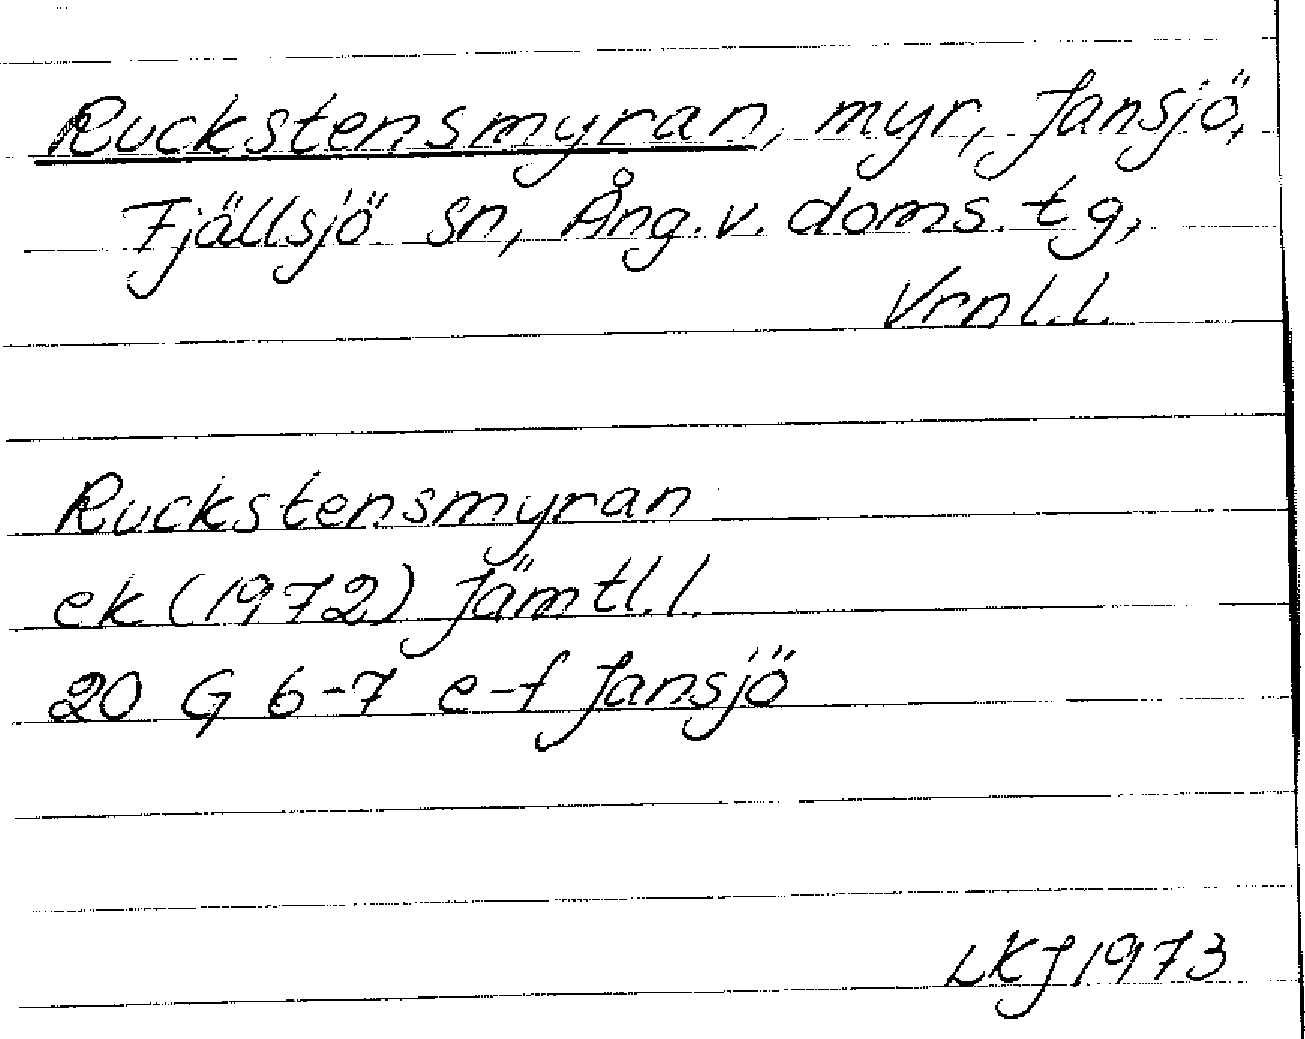 Ruckstensmyran, myr, Jansjö,
Fjällsjö sn, Ång. v. doms. tg,
Vrnl.l.
Ruckstensmyran
ek (1972) Jämtl.l.
20 G 6-7 e-f Jansjö
LKJ 1973